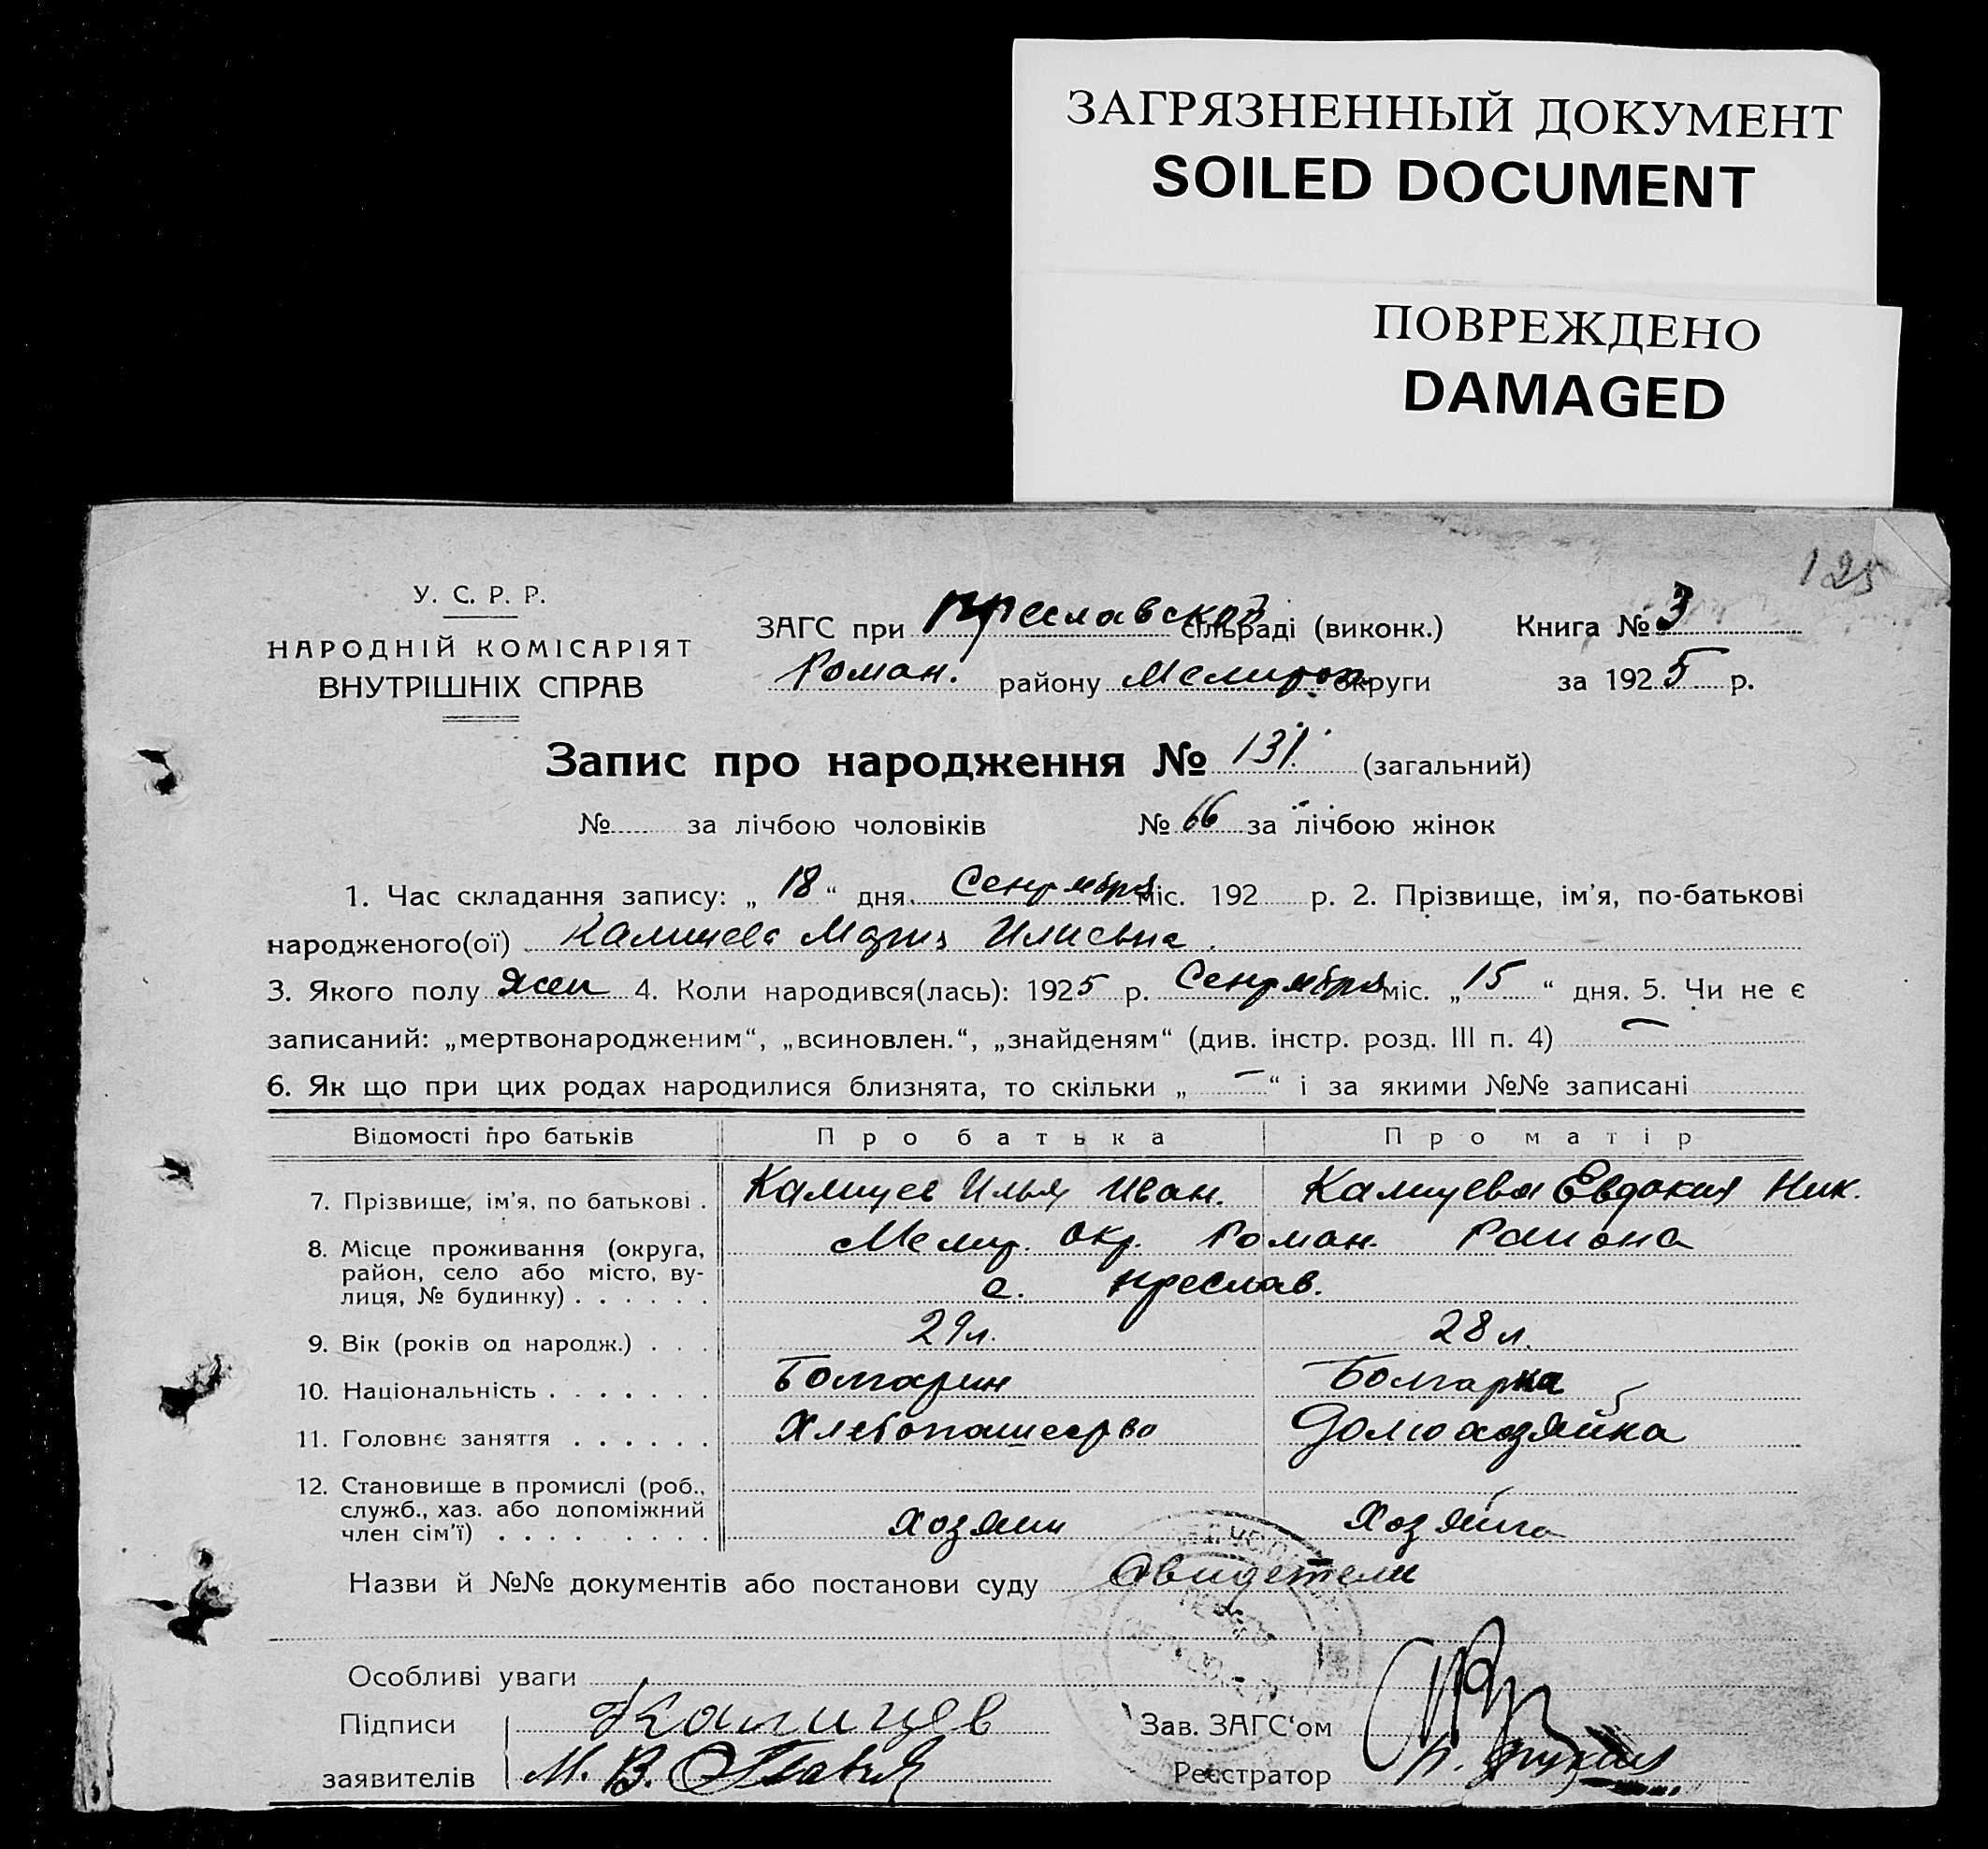 ЗАГРЯЗНЕННЫЙ ДОКУМЕНТ
SOILED DOCUMENT
ПОВРЕЖДЕНО
DAMAGED
125
У. С. Р. Р.
НАРОДНІЙ КОМІСАРІЯТ
ВНУТРІШНІХ СПРАВ
ЗАГС при Преславской сільраді (виконк.) Книга № 3
Роман. району Мелитоп. округи за 1925 р.
Запис про народження № 131. (загальний)
№ за лічбою чоловіків № 66 за лічбою жінок
1. Час складання запису: „ 18 “ дня Сентября міс. 192 р. 2. Прізвище, ім'я, по-батькові
народженого(ої) Калищева Мария Илиевна
3. Якого полу жен 4. Коли народився(лась): 1925 р. Сентября міс. „ 15 “ дня. 5. Чи не є
записаний: „мертвонародженим“, „всиновлен.“, „знайденям“ (див. інстр. розд. III п. 4) —
6. Як що при цих родах народилися близнята, то скільки „ — “ і за якими №№ записані
Відомості про батьків Про батька Про матір
7. Прізвище, ім'я, по батькові . Калищев Илья Иван. Калищева Евдокия Ник.
8. Місце проживання (округа, район, село або місто, вулиця, № будинку) . . . . . . Мелит. окр. Роман. Района
с. Преслав.
9. Вік (років од народж.) . . . 29 л. 28 л.
10. Національність . . . . . . . Болгарин Болгарка
11. Головнє заняття . . . . . . Хлебопашество Домохозяйка
12. Становище в промислі (роб.,
служб., хаз. або допоміжний
член сім'ї) . . . . . . . . хозяин хозяйка
Назви й №№ документів або постанови суду Свидетели
Особливі уваги
Підписи Калищев Зав. ЗАГС'ом
заявителів М. В. Реєстратор